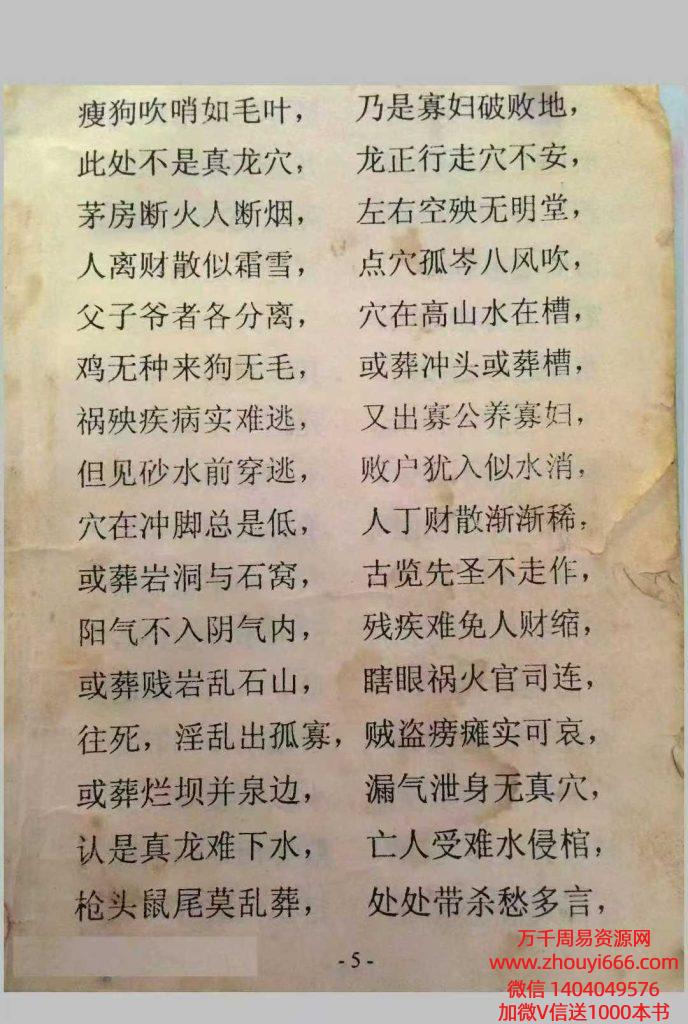 瘦狗吹哨如毛叶， 乃是寡妇破败地，
此处不是真龙穴， 龙正行走穴不安，
茅房断火人断烟， 左右空殃无明堂，
人离财散似霜雪， 点穴孤岑八风吹，
父子爷者各分离， 穴在高山水在槽，
鸡无种来狗无毛， 或葬冲头或葬槽，
祸殃疾病实难逃， 又出寡公养寡妇，
但见砂水前穿逃， 败户犹入似水消，
穴在冲脚总是低， 人丁财散渐渐稀，
或葬岩洞与石窝， 古览先圣不走作，
阳气不入阴气内， 残疾难免人财缩，
或葬贱岩乱石山， 瞎眼祸火官司连，
往死，淫乱出孤寡， 贼盗痨瘫实可哀，
或葬烂坝并泉边， 漏气泄身无真穴，
认是真龙难下水， 亡人受难水侵棺，
枪头鼠尾莫乱葬， 处处带杀愁多言，
- 5 -
万千周易资源网
www.zhouyi666.com
微信 1404049576
加微V信送1000本书